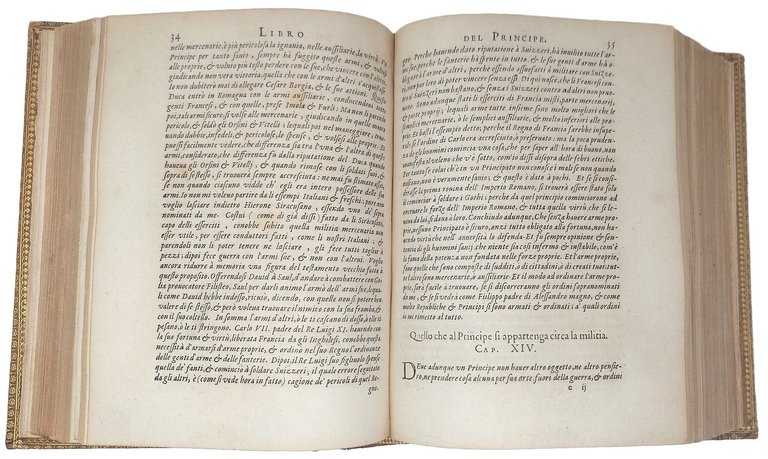 34 LIBRO
nelle mercenarie, è più pericolosa la ignauia, nelle aussiliarie, la virtù. Vn
Principe per tanto sauio, sempre hà fuggito queste armi, & voltosi
alle proprie, & voluto più tosto perdere con le sue, che vincere con l'altrui,
giudicando non vera vittoria, quella che con le armi d'altri s'acquistasse.
Io non dubitero mai di allegare Cesare Borgia, & le sue attioni. Questo
Duca entrò in Romagna con le armi aussiliarie, conducendoui tutte
genti Francesi, & con quelle, prese Imola & Furlì: Ma non li parendo
poi, tali armi sicure, si volse alle mercenarie, giudicando in quelle manco
pericolo, & soldò gli Orsini & Vitelli, lequali poi nel maneggiare, troua
uando dubbie, infedeli, & pericolose, le spense, & volsesi alle proprie. Et si
può facilmente vedere, che differenza sia tra l'vna & l'altra di queste
armi, considerato, che differenza fù dalla riputatione del Duca quando
haueua gli Orsini & Vitelli, & quando rimase con li soldati suoi, &
sopra di se stesso, si trouerà sempre accresciuta: ne mai fu stimato assai,
se non quando ciascuno vidde ch'egli era intero possessore delle sue
armi. Io non mi voleuo partire da li essempi Italiani & freschi; pure non
voglio lasciare indietro Hierone Siracusano, essendo vno de' sopra
nominati da me. Costui (come di già dissi) fatto da li Siracusani,
capo delli esserciti, conobbe subito quella militia mercenaria non
esser vtile, per essere conduttori fatti, come li nostri Italiani; &
parendoli non li poter tenere ne lasciare, gli fece tutti tagliare à
pezzi: dipoi fece guerra con l'armi sue, & non con l'altrui. Voglio
ancora ridurre à memoria vna figura del testamento vecchio fatta à
questo proposito. Offerendosi Dauid à Saul, d'andare à combattere con Go-
lia prouocatore Filisteo, Saul per darli animo l'armò dell'armi sue, lequa-
li come Dauid hebbe indosso, ricusò, dicendo, con quelle non si potere ben
valere di se stesso, & però voleua trouare il nimico con la sua fromba, &
con il suo coltello. In somma l'armi d'altri, ò le ti cascano di dosso, ò le ti
pesano, ò le ti stringono. Carlo VII. padre del Re Luigi XI. hauendo con
la sua fortuna & virtù, liberata Francia da gli Inghilesi, conobbe questa
necessità d'armarsi d'arme proprie, & ordinò nel suo Regno l'ordinanze
delle genti d'arme & delle fanterie. Dipoi, il Re Luigi suo figliuolo spense
quella de' fanti, & cominciò à soldare Suizzeri, il quale errore seguitato
da gli altri, è (come si vede hora in fatto) cagione de' pericoli di quel Re-
gno.
DEL PRINCIPE. 35
gno. Perche hauendo dato riputatione à Suizzeri, hà inuilito tutte l'ar-
mi sue, perche le fanterie hà spente in tutto, & le sue genti d'arme hà o-
bligate all'arme d'altri, perche essendo assuefatti à militare con Suizze-
ri, non par loro di poter vincere senza essi. Di qui nasce, che i Francesi con-
tro à Suizzeri non bastano, & senza Suizzeri contro ad altri non pruo-
uano. Sono adunque stati li esserciti di Francia misti, parte mercenarij,
& parte proprij; lequali arme tutte insieme sono molto migliori che le
semplici mercenarie, ò le semplici aussiliarie, & molto inferiori alle pro-
prie. Et basti l'essempio detto; perche il Regno di Francia sarebbe insupe-
rabile, se l'ordine di Carlo era accresciuto, ò preseruato: ma la poca pruden-
za de gli huomini comincia vna cosa, che per saper all'hora di buono, non
manifesta il veleno che v'è sotto, com'io dissi disopra delle febri ettiche.
Per tanto se colui ch'è in vn Principato non conosce i mali se non quando
nascono, non è veramente sauio; & questo è dato à pochi. Et se si consi-
derasse la prima rouina dell'Imperio Romano, si trouerà essere stato solo
il cominciar à soldare i Gothi; perche da quel principio cominciorono ad
eneruare le forze dell'Imperio Romano, & tutta quella virtù, che si le-
uaua da lui si daua à loro. Conchiudo adunque, Che senza hauere arme pro-
prie, nessuno Principato è sicuro, anzi tutto obligato alla fortuna, non ha-
uendo virtù che nell'auuersità lo difenda. Et fu sempre opinione & sen-
tenza de gli huomini sauij, che niente sia così infermo & instabile, com'è
la fama della potenza non fondata nelle forze proprie. Et l'arme proprie,
son quelle che sono composte di sudditi, ò di cittadini, ò di creati tuoi, tut-
te l'altre sono mercenarie, ò aussiliarie. Et il modo ad ordinare l'arme pro-
prie, sarà facile à trouare, se si discorreranno gli ordini sopranominati
da me, & se si vedrà come Filippo padre di Alessandro magno, & come
molte Republiche & Principi si sono armati & ordinati: à quali ordini
io mi rimetto al tutto.
Quello che al Principe si appartenga circa la militia.
CAP. XIV.
DEue adunque vn Principe non hauer altro oggetto, ne altro pensie-
ro, ne prendere cosa alcuna per sua arte fuori della guerra, & ordini
c ij